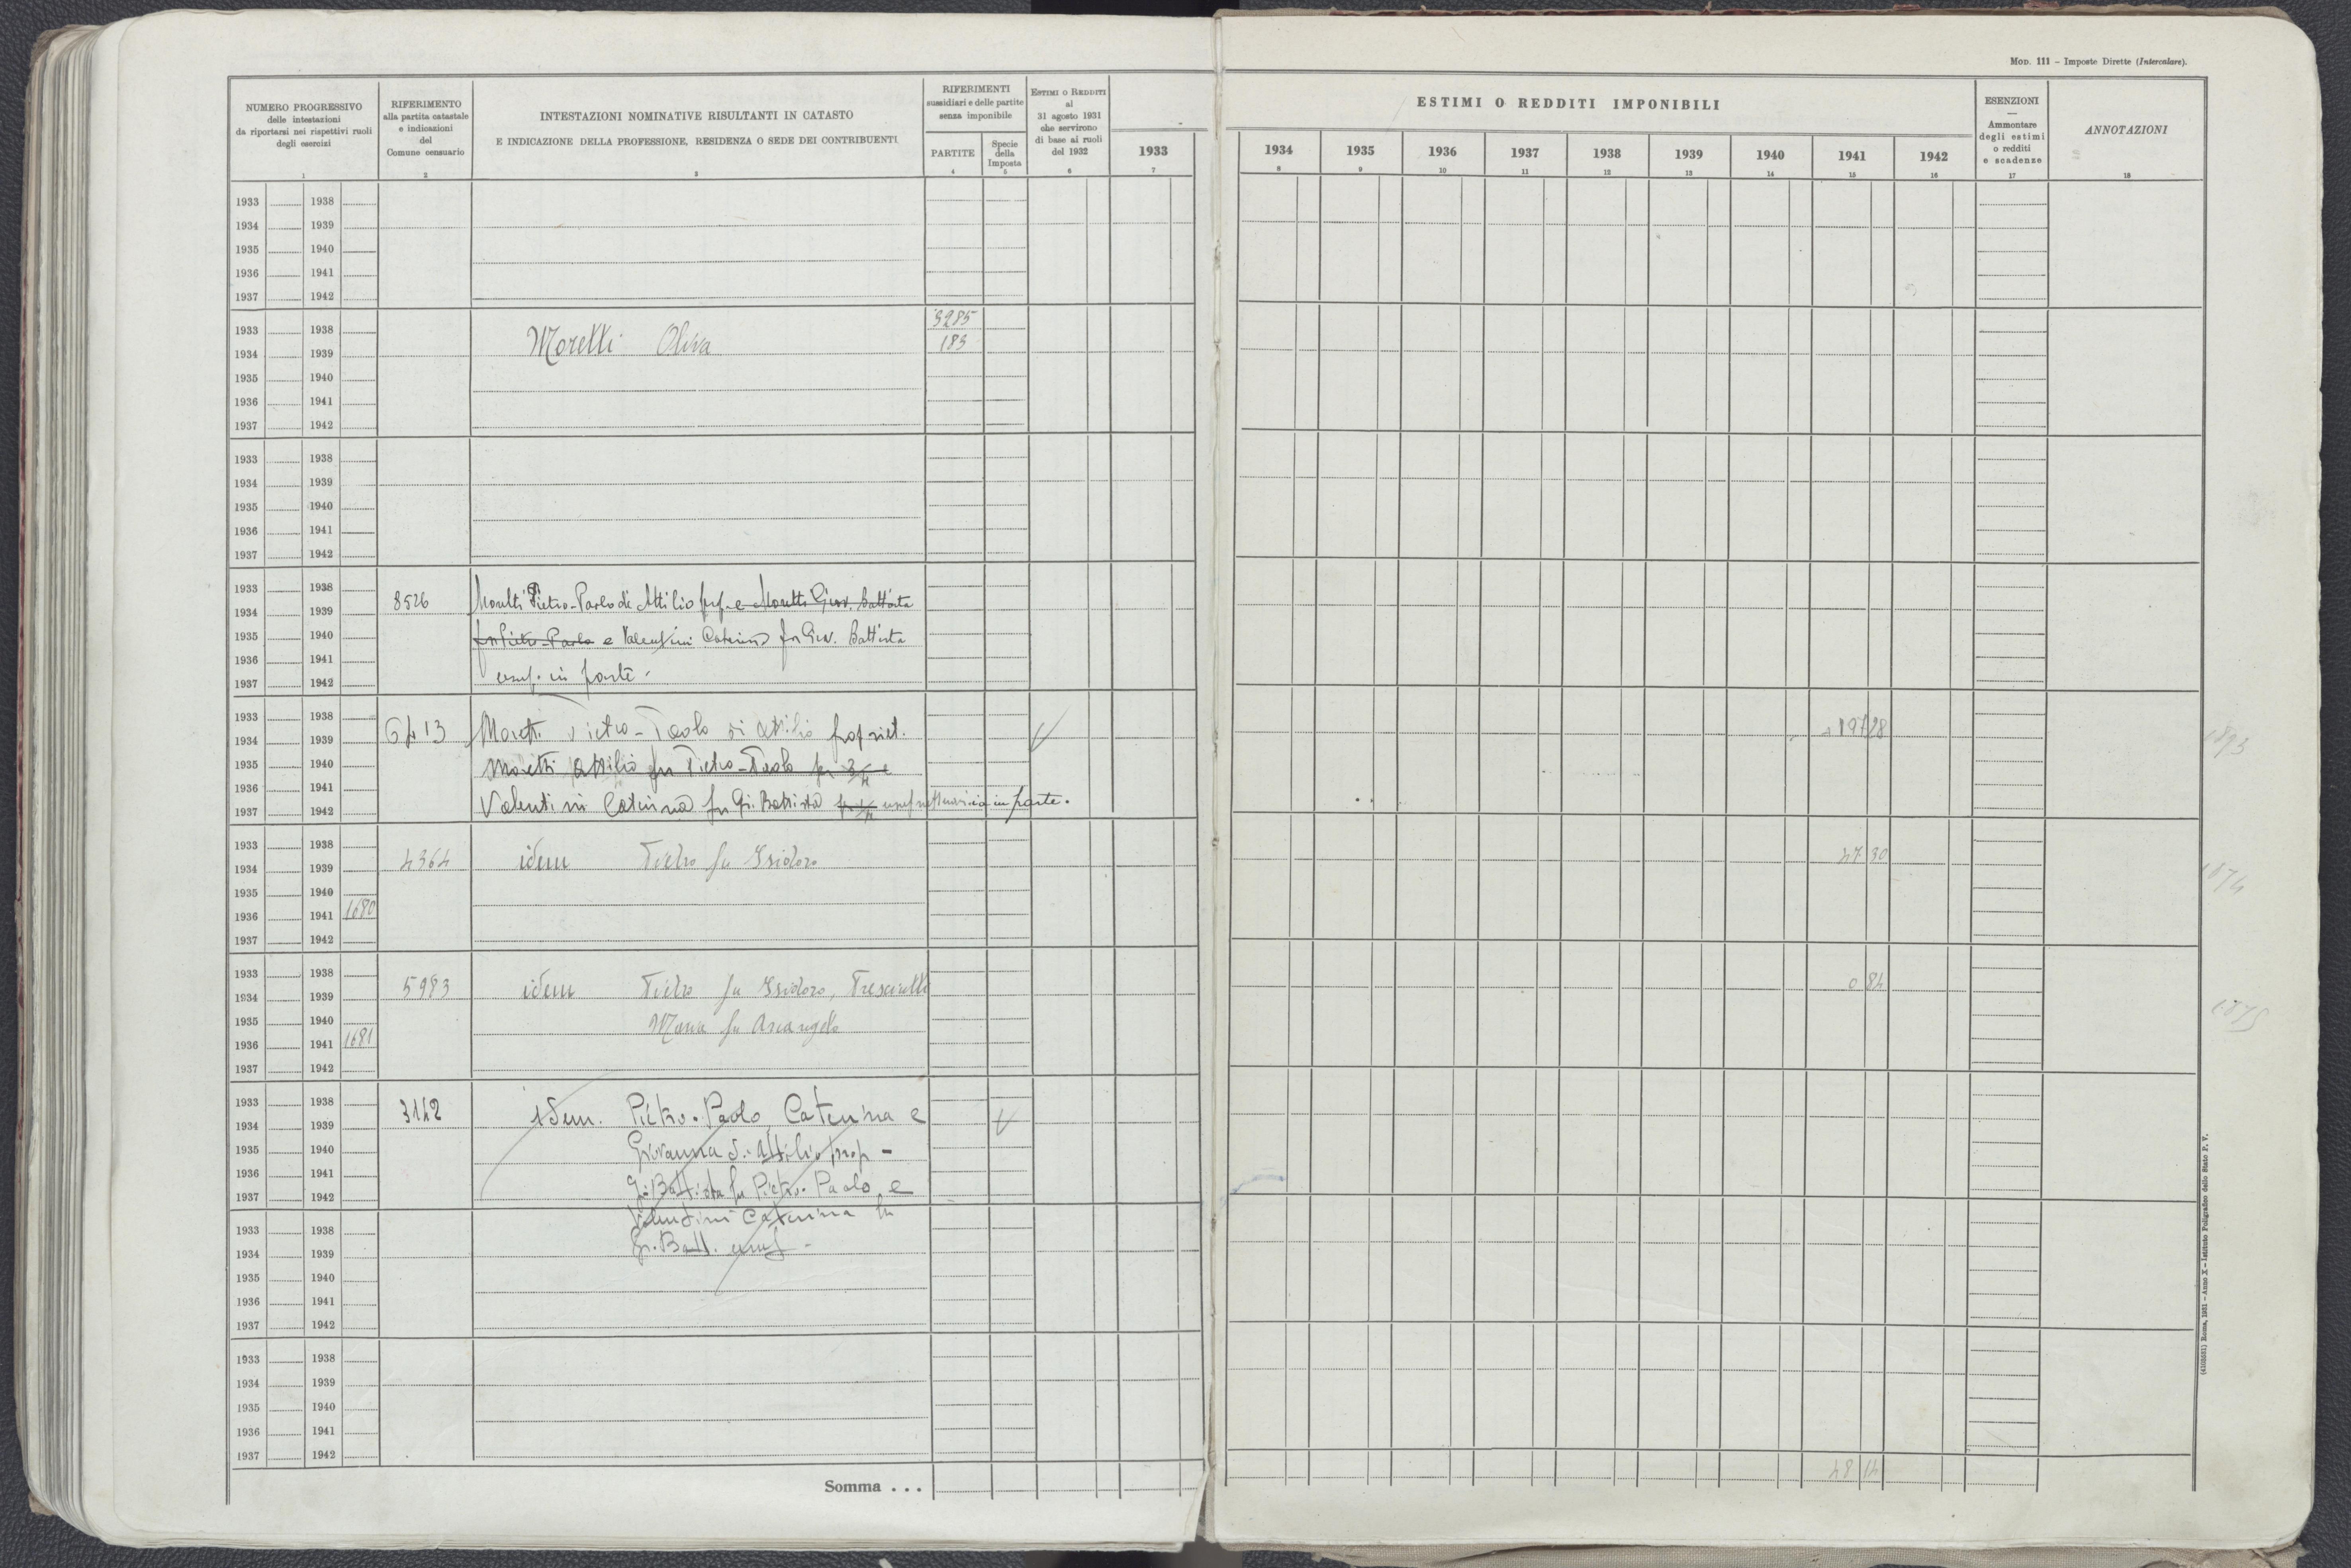 Mod. 111 – Imposte Dirette (Intercalare).
NUMERO PROGRESSIVO
delle intestazioni
da riportarsi nei rispettivi ruoli
degli esercizi
1
RIFERIMENTO
alla partita catastale
e indicazioni
del
Comune censuario
2
INTESTAZIONI NOMINATIVE RISULTANTI IN CATASTO
E INDICAZIONE DELLA PROFESSIONE, RESIDENZA O SEDE DEI CONTRIBUENTI
3
RIFERIMENTI
sussidiari e delle partite
senza imponibile
PARTITE
4
Specie
della
Imposta
5
Estimi o Redditi
al
31 agosto 1931
che servirono
di base ai ruoli
del 1932
6
ESTIMI O REDDITI IMPONIBILI
1933 1934 1935 1936 1937 1938 1939 1940 1941 1942
7 8 9 10 11 12 13 14 15 16
ESENZIONI
—
Ammontare
degli estimi
o redditi
e scadenze
17
ANNOTAZIONI
18
1933 1938
1934 1939
1935 1940
1936 1941
1937 1942
1933 1938 3285
1934 1939 Moretti Oliva 183
1935 1940
1936 1941
1937 1942
1933 1938
1934 1939
1935 1940
1936 1941
1937 1942
1933 1938
1934 1939 8526 Moretti Pietro-Paolo di Attilio prop. e Moretti Giov. Battista
1935 1940 fu Pietro-Paolo e Valentini Caterina fu Giov. Battista
1936 1941
1937 1942 usuf. in parte.
1933 1938
1934 1939 6413 Moretti Pietro-Paolo di Attilio propriet. 197 28
1935 1940 Moretti Attilio fu Pietro-Paolo per 3/4 e
1936 1941
1937 1942 Valentini Caterina fu Gi. Battista per 1/4 usufruttuaria in parte.
1933 1938
1934 1939 4364 idem Pietro fu Isidoro 47 30
1935 1940
1936 1941 1680
1937 1942
1674
1933 1938
1934 1939 5983 idem Pietro fu Isidoro, 0 84
1935 1940 Maria fu Arcangelo
1936 1941 1681
1937 1942
1675
1933 1938
1934 1939 3142 idem. Pietro-Paolo, Caterina e
1935 1940 Giovanna di Attilio prop -
1936 1941
1937 1942 Gi Battista fu Pietro-Paolo e
1933 1938 Valentini Caterina fu
1934 1939 Gi. Batt. usuf -
1935 1940
1936 1941
1937 1942
1933 1938
1934 1939
1935 1940
1936 1941
1937 1942
Somma . . . 48 14
(4103581) Roma, 1931 – Anno X – Istituto Poligrafico dello Stato P. V.